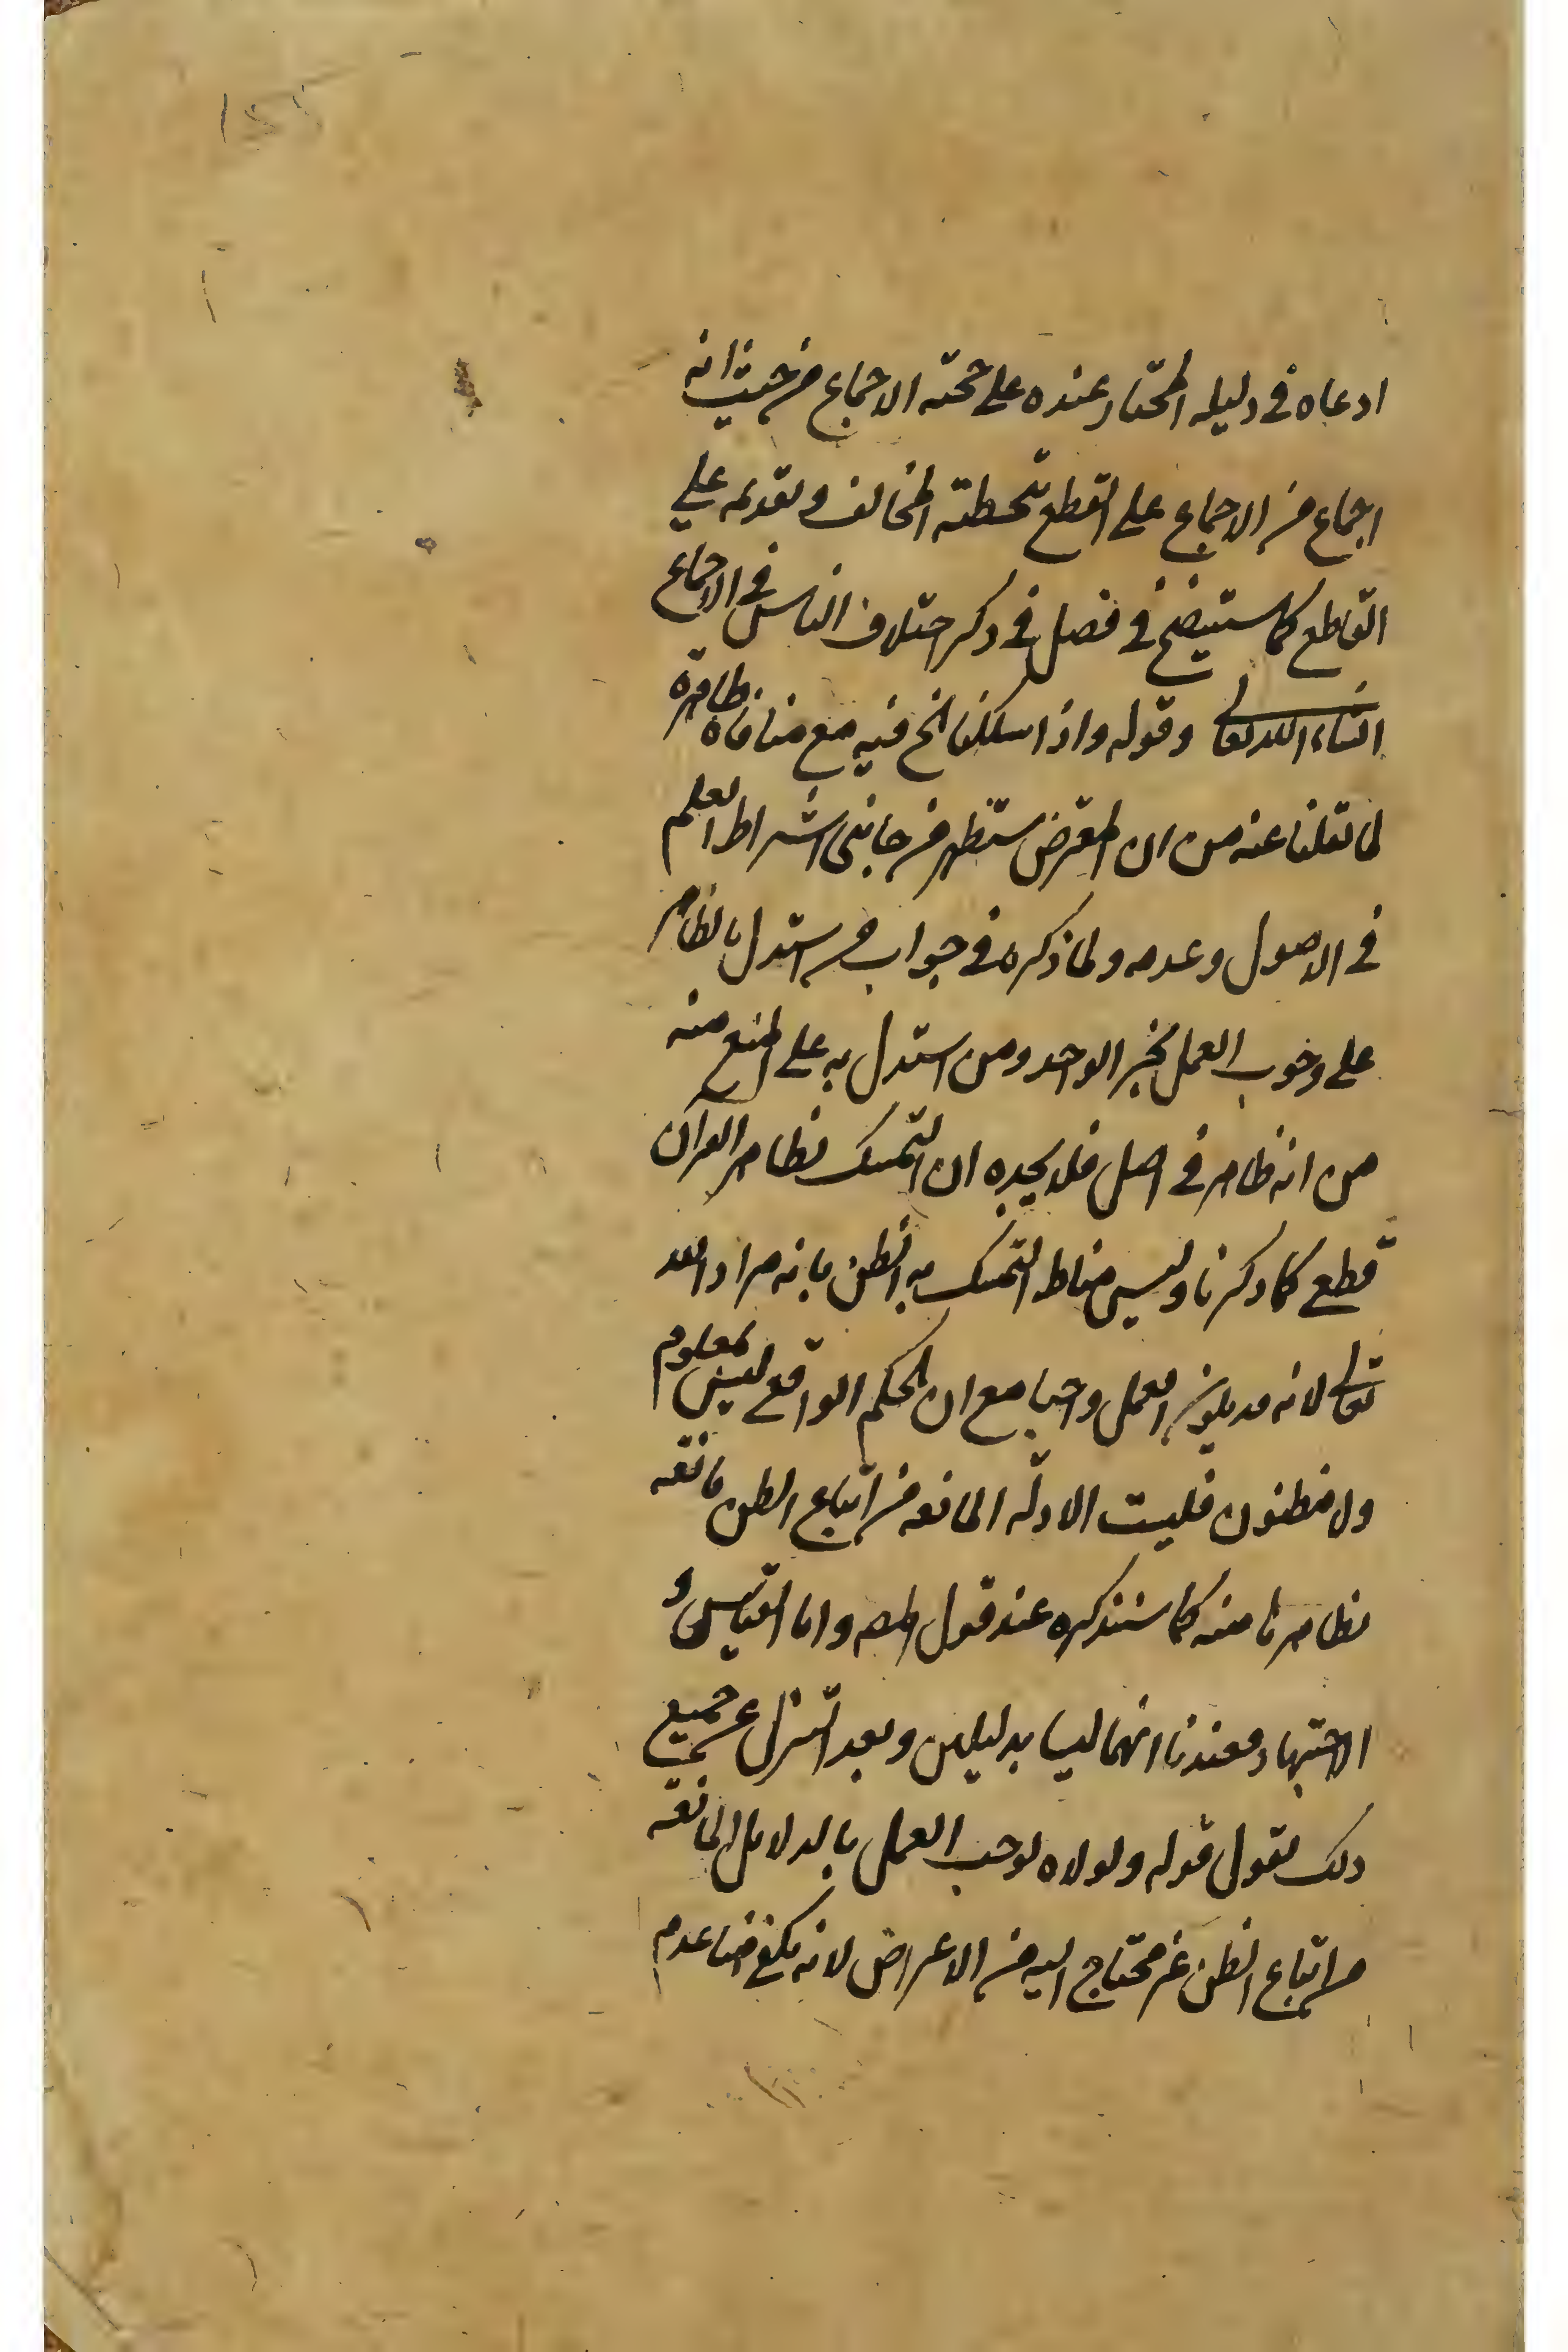 ادعاه في دليله المختار عنده على حجته الاجماع من حيث انه
اجماع من الاجماع على القطع بتخطئة المخالف وتقدمه على
القاطع كما ستيضح في فصل في ذكر اختلاف الناس في الاجماع
انشاء الله تعالى وقوله واذا سلكنا الخ فيه مع منافاة ظاهره
لما نقلنا عنه من ان المعترض مستظهر من جانبى اشتراط العلم
في الاصول وعدمه ولما ذكره في جواب من استدل بالظاهر
على وجوب العمل بخبر الواحد ومن استدل به على المنع منه
من انه ظاهر في اصل فلا يجديه ان التمسك بظاهر القرآن
قطع كما ذكرنا وليس مناط التمسك به الظن بانه مراد الله
تعالى لانه قد يكون العمل واجبا مع ان الحكم الواقع ليس بمعلوم
ولا مظنون فليست الادلة المانعة من اتباع الظن مانعة
بظاهرنا منه كما سنذكره عند قول المص واما القياس و
الاجتهاد فعندنا انهما ليسا بدليلين وبعد التنزل عن جميع
ذلك نقول قوله ولولاه لوجب العمل بالدلائل المانعة
من اتباع الظن غير محتاج اليه من الاعتراض لانه يكفي عدم